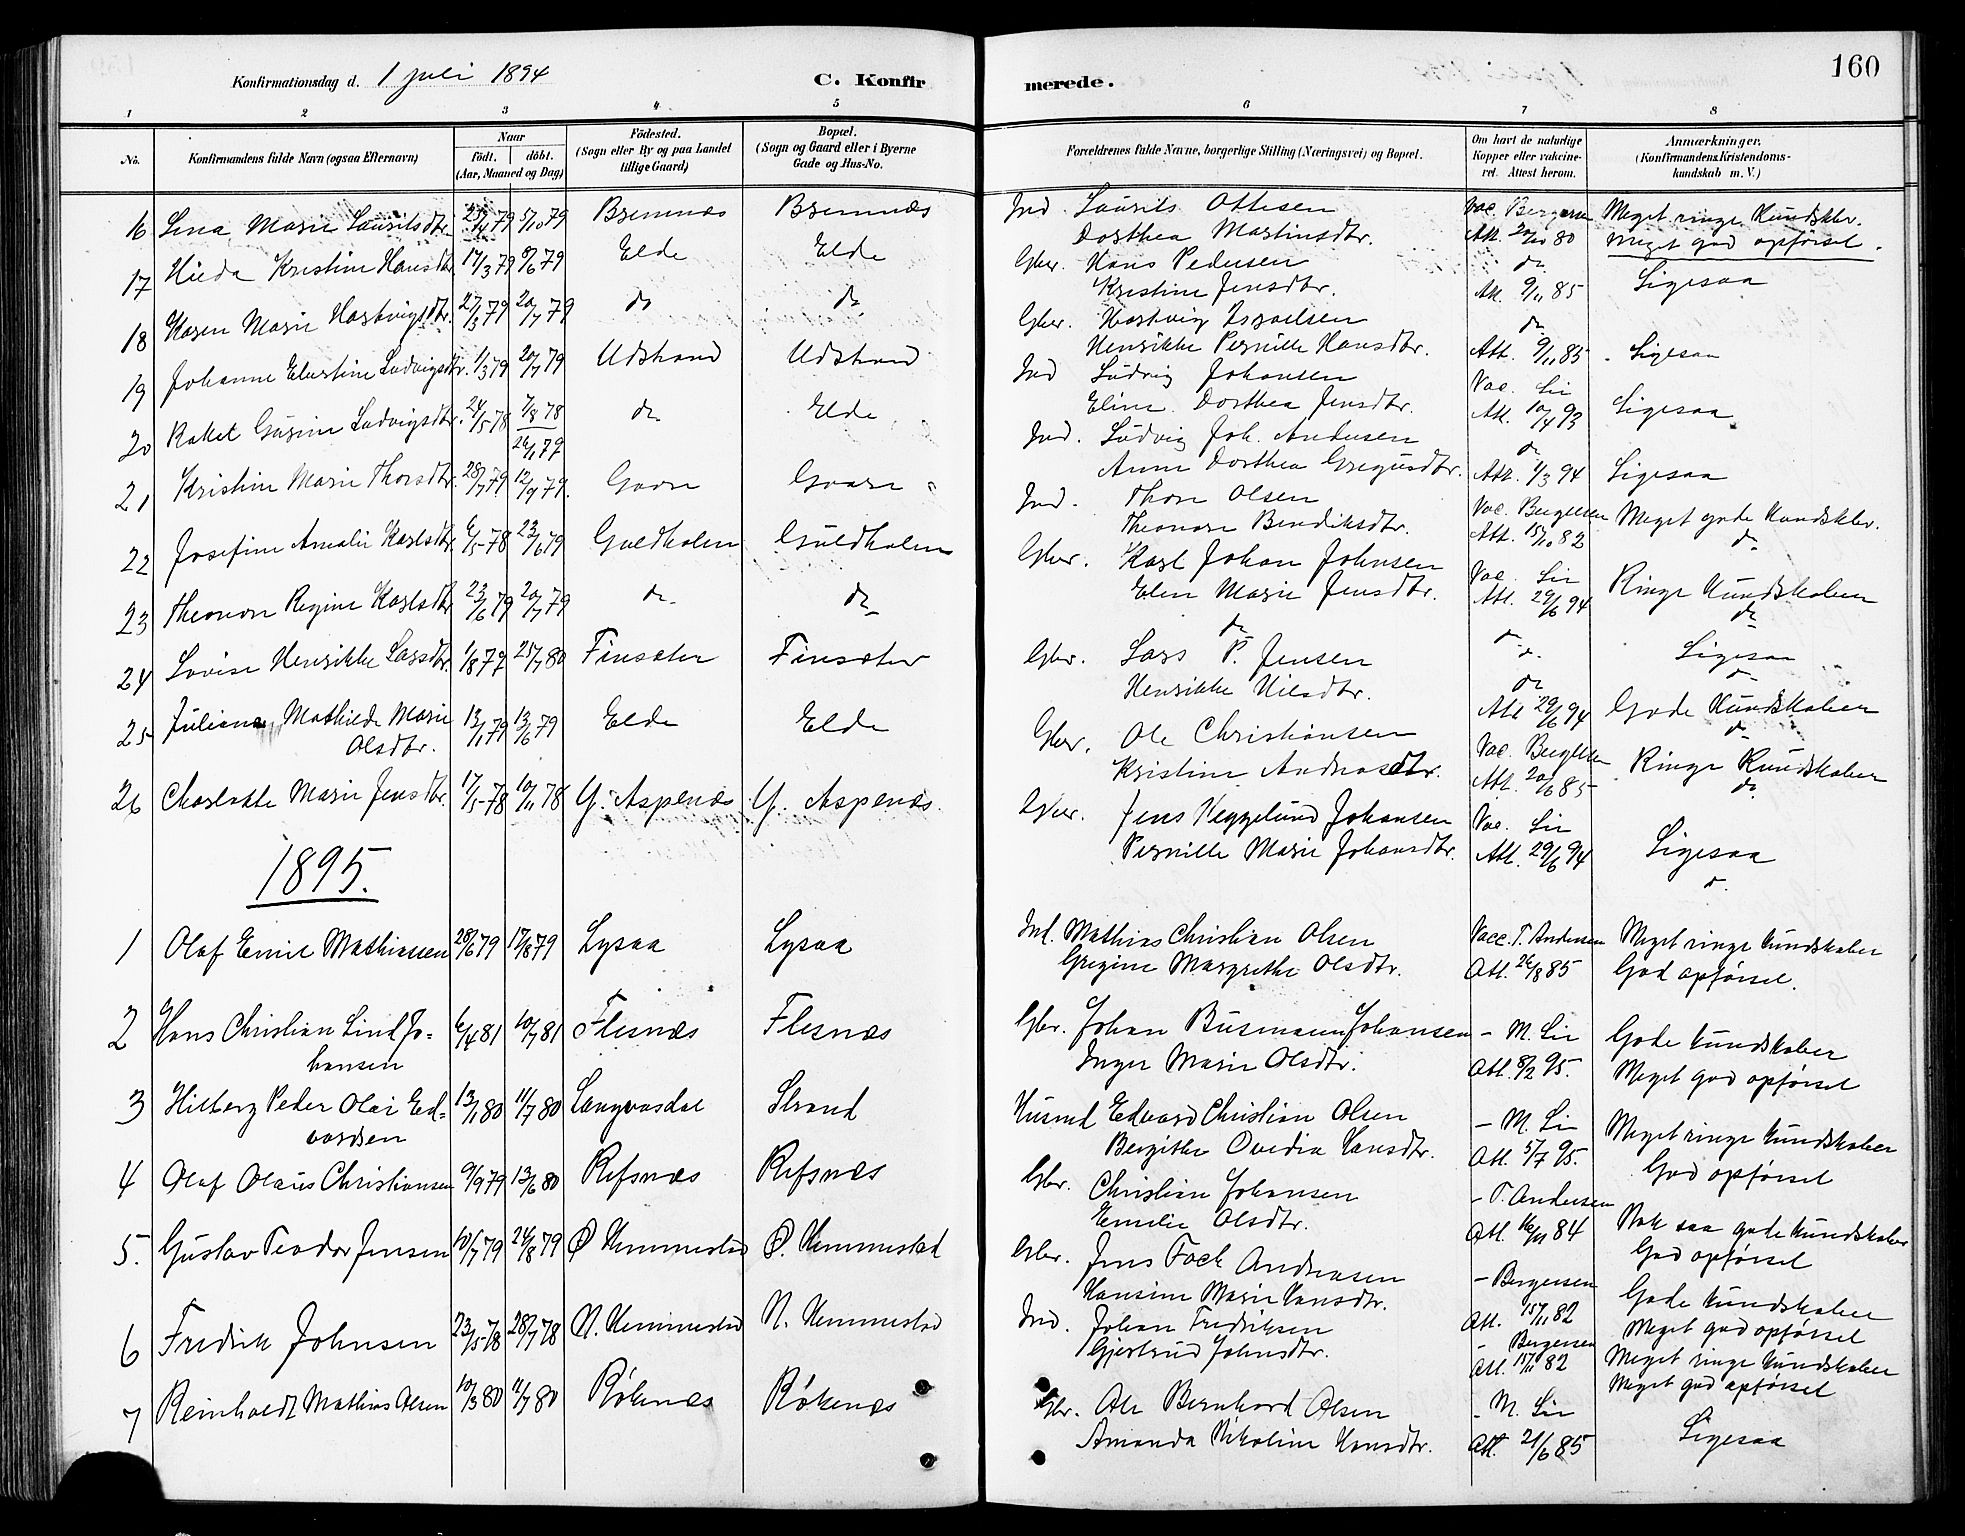 160
Konfirmationsdag d. 1 juli 1894
C. Konfirmerede.
1 2 3 4 5 6 7 8
No.
Konfirmandens fulde Navn (ogsaa Efternavn)
Naar
födt. döbt.
(Aar, Maaned og Dag)
Födested.
(Sogn eller By og paa Landet tillige Gaard)
Bopæl.
(Sogn og Gaard eller i Byerne Gade og Hus-No.
Forældrenes fulde Navne, borgerlige Stilling (Næringsvei) og Bopæl.
Om havt de naturlige Kopper eller vakcineret. Attest herom.
Anmærkninger.
(Konfirmandens Kristendomskundskab m. V.)
16 Lina Marie Lauritsdtr. 79 5/10 79 Bremnæs Bremnæs Ind. Laurits Ottesen Vac. Bergersen Meget ringe Kundskber.
Dorthea Martinsdtr. Att. 80 Meget god opførsel.
17 Hilda Kristine Hansdtr 17/3 79 8/6 79 Elde Elde Gbr. Hans Pedersen do Ligesaa
Kristine Jensdtr. Att. 9/11 85
18 Karen Marie Hartvigsdtr. 27/3 79 20/7 79 do do Gbr. Hartvig Israelsen do
Henrikke Pernille Hansdtr. Att. 9/11 85 Ligesaa
19 Johanne Elertine Ludvigsdtr. 1/3 79 20/7 79 Udstrand Udstrand Ind Ludvig Johansen Vac. Lie
Eline Dorthea Jensdtr. Att. 10/4 93 Ligesaa
20 Rakel Gusine Ludvigsdtr. 24/5 78 7/8 78 do Elde Ind. Ludvig Joh. Andersen do
26/1 79 Anne Dorthea Gregusdtr. Att. 1/3 94 Ligesaa
21 Kristine Marie Thorsdtr. 28/7 79 12/9 79. Gaare Gaare Ind. Thore Olsen Vac. Bergersen Meget gode Kundskber.
Theonore Bendiksdtr. Att. 15/10 82 do
22 Josefine Amalie Karlsdtr. 6/5 78 23/6 79 Guldholm Guldholm Gbr. Karl Johan Johnsen Vac. Lie Ringe Kundskaber
Elen Marie Jensdtr. Att. 29/6 94 do
23 Theonore Regine Karlsdtr 23/6 79 20/7 79 do do do do Ligesaa
24 Lovise Henrikke Larsdtr. 1/8 79 25/7 80 Finsæter Finsæter Gbr. Lars P. Jensen do do
Henrikke Nilsdtr. Att 29/6 94 Gode Kundskaber
25 Juliane Mathilde Marie Olsdtr. 13/1 79 13/6 79 Elde Elde Gbr. Ole Christiansen Vac. Bergersen Ringe Kundskaber
Kristine Andreasdtr. Att. 20/6 85 do
26 Charlotte Marie Jensdtr. 17/5 78 10/11 78 Y. Aspenæs Y. Aspenæs. Gbr. Jens Heggelund Johansen Vac. Lie Ligesaa
Pernille Marie Johansdtr. Att. 29/6 94 do
1895.
1 Olaf Emil Mathiassen 28/6 79 17/8 79 Lysaa Lysaa Ind. Mathias Christian Olsen Vacc. T. Andersen Meget ringe Kundskaber
Gregine Margrethe Olsdtr. Att. 26/8 85 God opførsel.
2 Hans Christian Lind Johansen 6/4 81 10/7 81 Flesnæs Flesnæs Gbr. Johan Busmann Johansen – M. Lie Gode Kundskaber
Inger Marie Olsdtr. Att. 8/2 95. Meget god opførsel
3 Hilberg Peder Olai Edvardsen 13/1 80 11/7 80 Langvasdal Strand Husmd Edvard Christian Olsen – M. Lie Meget ringe Kundskaber
Bergithe Ovedia Hansdtr. Att. 5/7 95. God opførsel
4 Olaf Olaus Christiansen 9/9 79 13/6 80 Refsnæs Refsnæs Gbr. Christian Johansen – T. Andersen Nok saa gode Kundskaber
Emelie Olsdtr. Att. 16/11 84 God opførsel
5. Gustav Teodor Jensen 10/7 79 24/8 79 Ø Hemmestad Ø. Hemmestad Gbr. Jens Fock Andreasen – Bergersen Gode Kundskaber
Hansine Marie Hansdtr. Att. 15/11 82 Meget god opførsel
6 Fredrik Johnsen 23/5 78 28/7 78 N. Hemmestad N. Hemmestad Ind. Johan Fredriksen – Bergersen Meget ringe Kundskaber
Gjertrud Johnsdtr. Att. 15/11 82 Meget god opførsel
7 Reinholdt Mathias Olsen 10/3 80 11/7 80 Røkenæs Røkenæs Gbr. Ole Bernhard Olsen – M. Lie Ligesaa
Amanda Nikoline Hansdtr. Att. 21/6 85